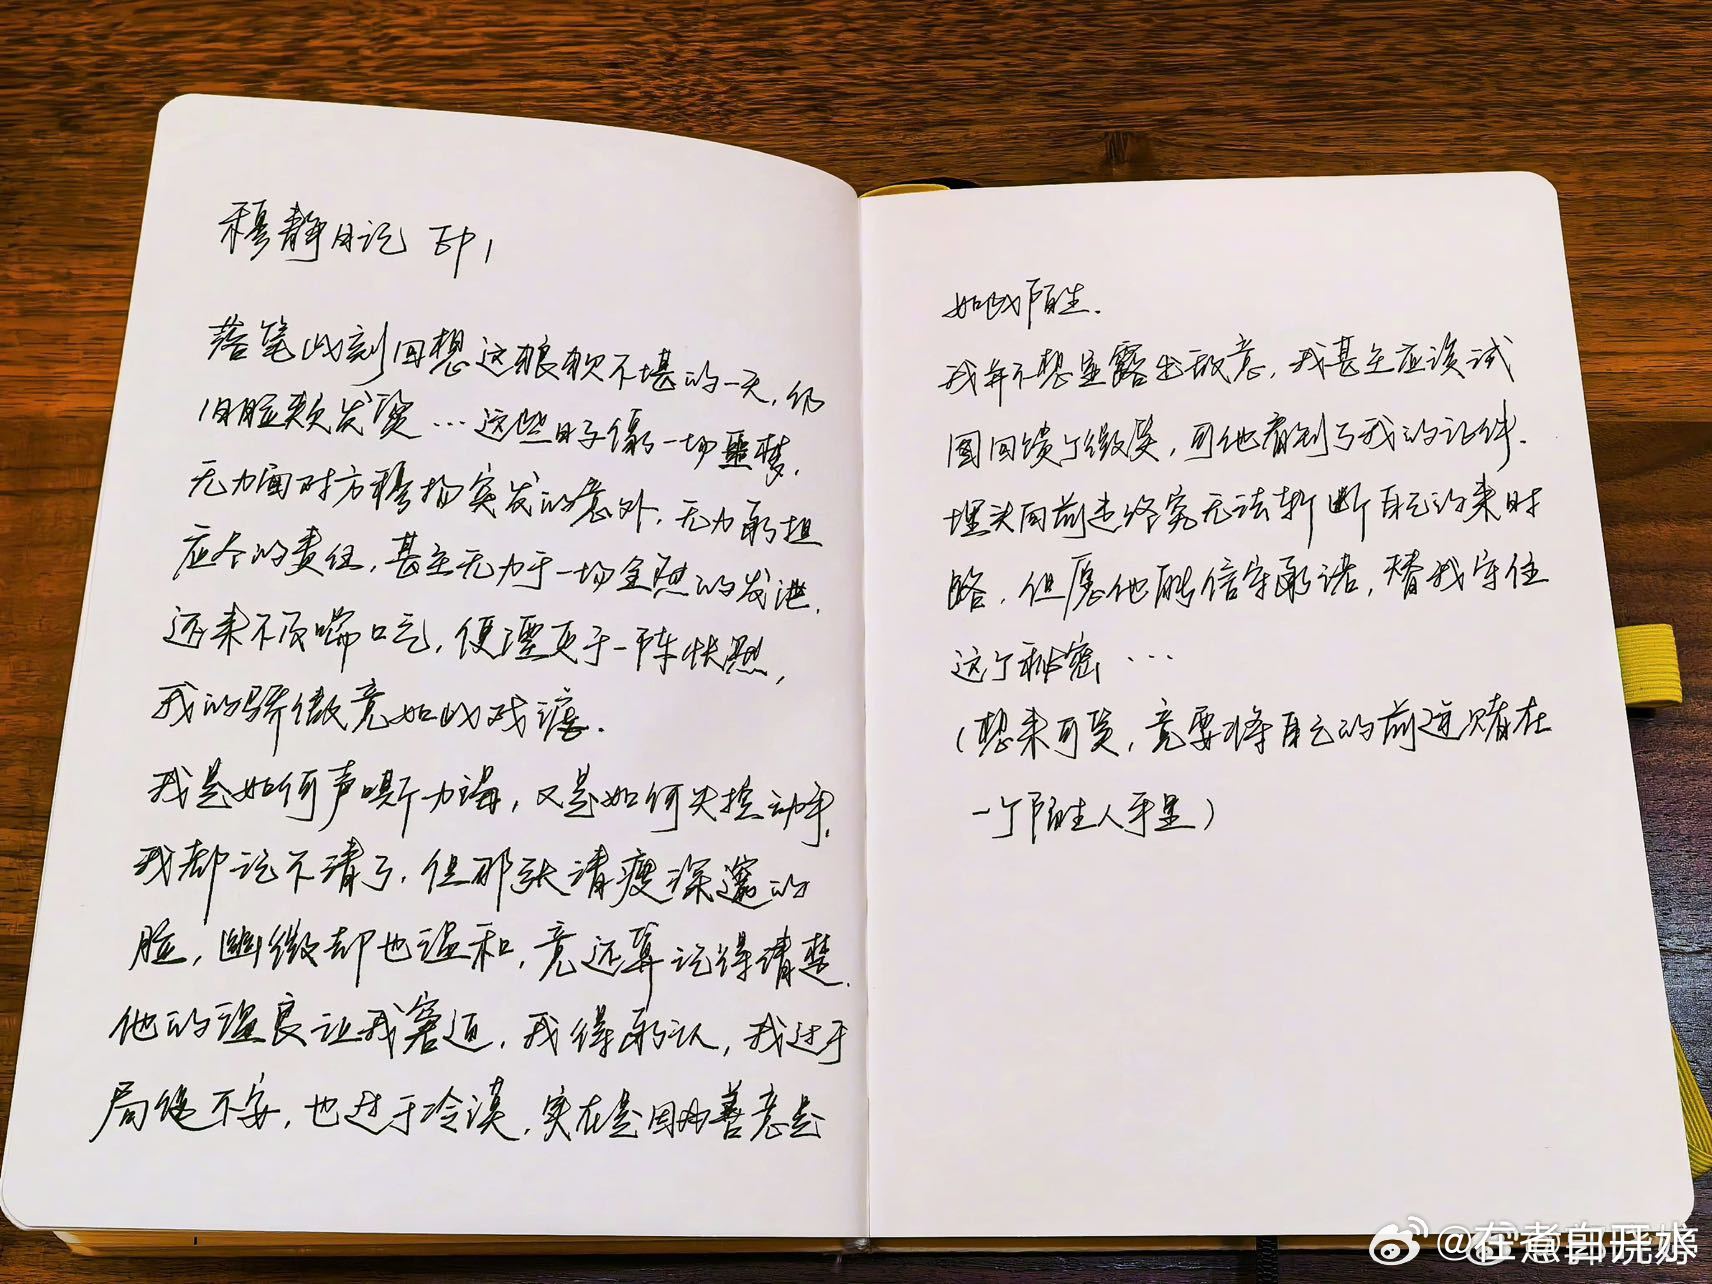 穆静日记 EP1
落笔此刻回想这狼狈不堪的一天，仍
旧脸颊发烫…这些日子像一场噩梦，
无力面对方穆扬突发的意外，无力承担
应尽的责任，甚至无力于一场全然的发泄，
还来不及喘口气，便湮灭于一阵怅然，
我的骄傲竟如此残喘。
我是如何声嘶力竭，又是如何失控动手，
我都记不清了，但那张清瘦深邃的
脸，幽微却也温和，竟还算记得清楚。
他的温良让我窘迫，我得承认，我过于
局促不安，也过于冷漠，实在是因为善意是
如此陌生。
我并不想显露出敌意，我甚至应该试
图回馈个微笑，可他看到了我的证件。
埋头向前走终究无法斩断自己的来时
路，但愿他能信守承诺，替我守住
这个秘密…
（想来可笑，竟要将自己的前途赌在
一个陌生人手里）